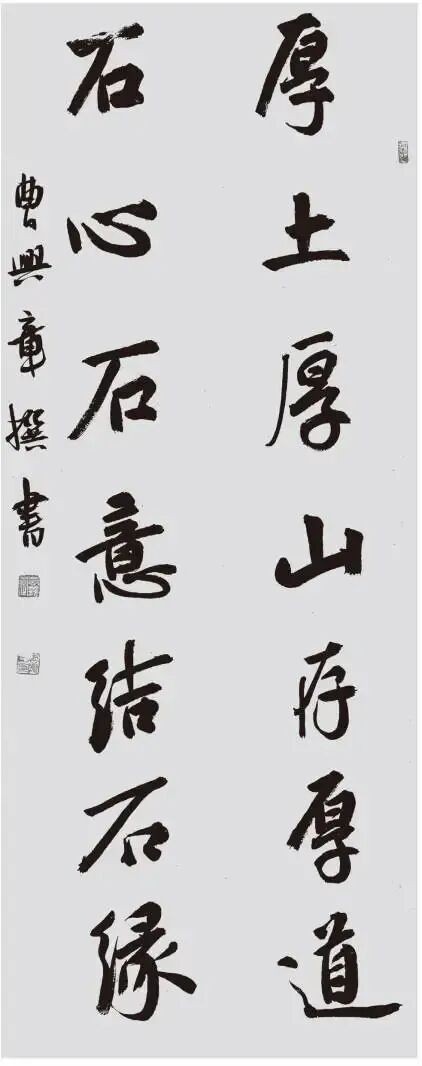 厚土厚山存厚道
石心石意结石缘
曹興章撰書